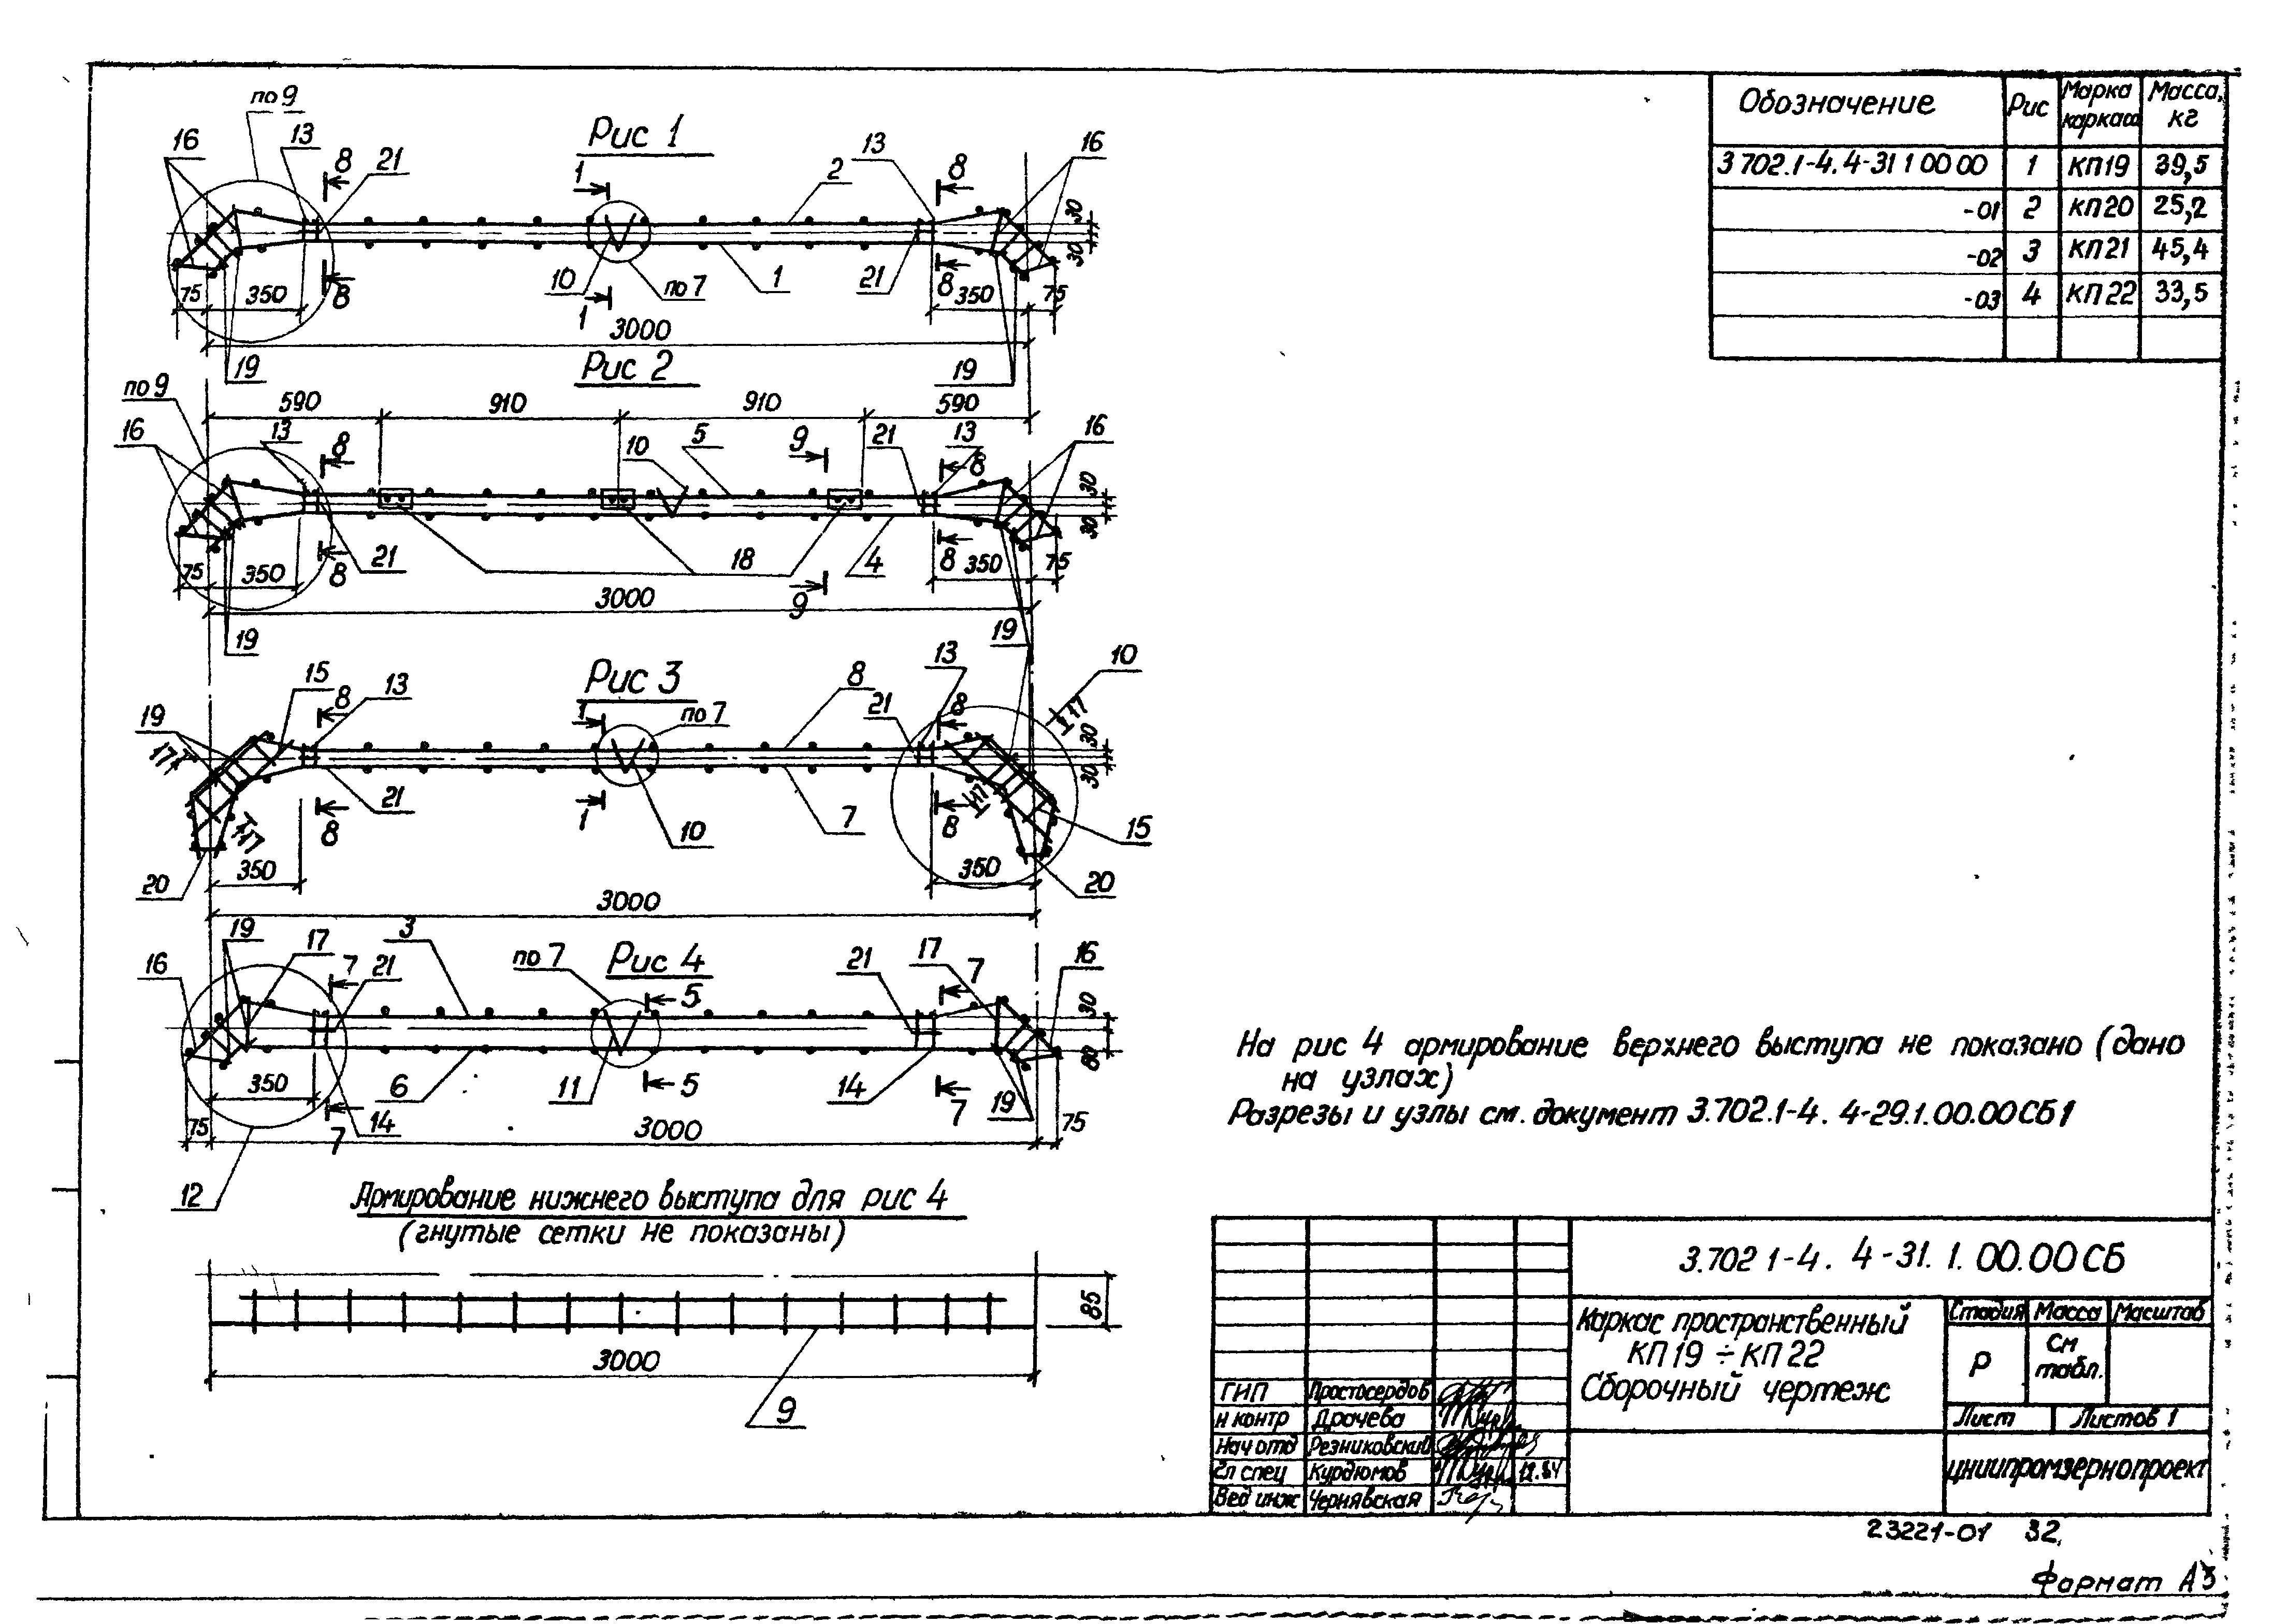 Обозначение Рис Марка каркаса Масса, кг
3 702.1-4. 4-31 1 00 00 1 КП19 39,5
-01 2 КП20 25,2
-02 3 КП21 45,4
-03 4 КП22 33,5
по 9
16 13 8 21
Рис 1
1 13 2 8 16
30
30
10 по 7 1 21
75 350 8 1 8 350 75
3000
19 19
Рис 2
по 9
590 910 910 590
16 13 8 10 5 9 21 13 8 16
30
30
75 350 8 21 18 9 4 8 350 75
3000
19 19
Рис 3
15 13 8 1 по 7 8 21 13 8 10
19 17 17
30
30
17 21 8 1 10 7 8 17 15
20 350 350 20
3000
Рис 4
19 17 3 по 7 17
16 7 21 5 21 7 16
30
80
75 350 7 14 6 11 5 14 7 19 75
3000
12
Армирование нижнего выступа для рис 4
(гнутые сетки не показаны)
85
3000
9
На рис 4 армирование верхнего выступа не показано (дано
на узлах)
Разрезы и узлы см. документ 3.702.1-4. 4-29.1.00.00СБ1
3.702 1-4. 4-31. 1. 00.00 СБ
Каркас пространственный
КП 19 ÷ КП 22
Сборочный чертеж
Стадия Масса Масштаб
Р См табл.
Лист Листов 1
ЦНИИпромзернопроект
ГИП Простосердов
Н контр Драчева
Нач отд Резниковский
Гл спец Курдюмов 12.84
Вед инж Чернявская
23221-01 32
Формат А3